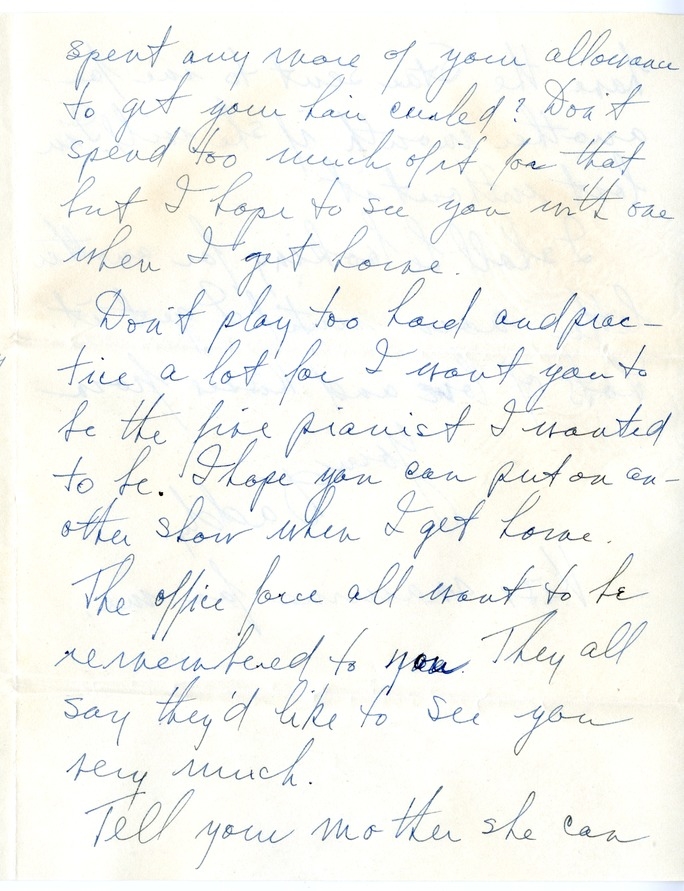 spent any more of your allowance
to get your hair curled? Don't
spend too much of it for that
but I hope to see you with one
when I get home.
Don't play too hard and prac-
tice a lot for I want you to
be the fine pianist I wanted
to be. I hope you can put on an-
other show when I get home.
The office force all want to be
remembered to you. They all
say they'd like to see you
very much.
Tell your mother she can